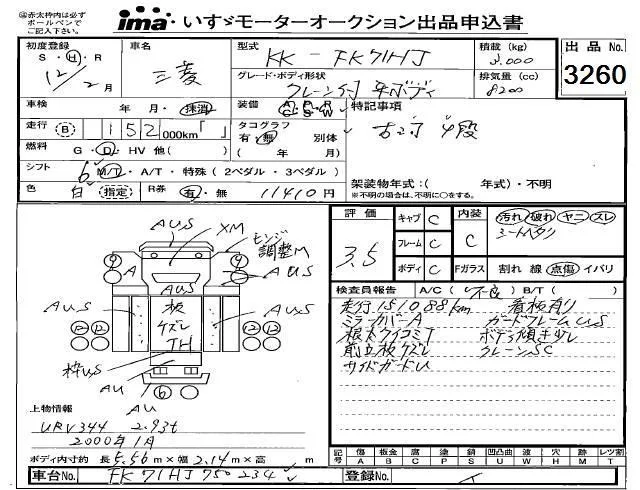 ㊟赤太枠内は必ず
ボールペンで
ご記入下さい。
ima・いすゞモーターオークション出品申込書
初度登録
S・H・R
12年2月
車名
三菱
型式
KK-FK71HJ
グレード・ボディ形状
クレーン付 平ボディ
積載 (kg)
3,000
排気量 (cc)
8200
出品 No.
3260
車検 年・月・抹消
装備 A・P・R
C・S・W
特記事項
古河 4段
走行 B 152 000km「 」
タコグラフ
有・無 別体
( 年 月)
燃料 G・D・HV 他( )
シフト 6 M/T・A/T・特殊(2ペダル・3ペダル)
架装物年式:( 年式)・不明
※不明の場合は、不明に○をする。
色 白 指定 R券 有・無 11410円
評価
3.5
キャブ C
フレーム C
ボディ C
内装
C
Fガラス
汚れ 破れ ヤニ スレ
シートヘタリ
割れ 線 点傷 イバリ
AUS
XM
センジ
調整M
A
AUS
AUS
板
ケズレ
TH
AUS
枠US
AU
AU
6
12 12
12 12
検査員報告 A/C(不良) B/T( )
走行151088km 看板有り
ミラーカバーA ガードフレームUS
根太クイコミT ボデー傾き少し
前立板ケズレ クレーンSC
サイドガードU
上物情報
URV344 2.93t
2000年1月
ボディ内寸約 長 5.56 m×幅 2.14 m×高 m
記号 傷A 板金B 腐C 塗P 錆S 凹凸曲U 要W 穴H 跡M レツ割T
車台No. FK71HJ750234
登録No.